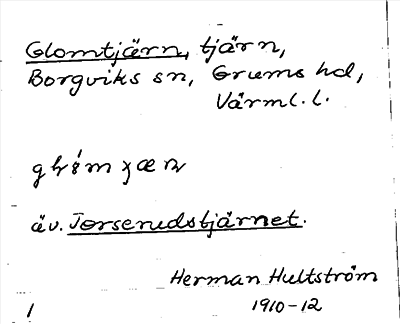 Glomtjärn, tjärn,
Borgviks sn, Grums hd,
Värml. l.
äv. Torserudstjärnet.
Herman Hultström
1910-12
1